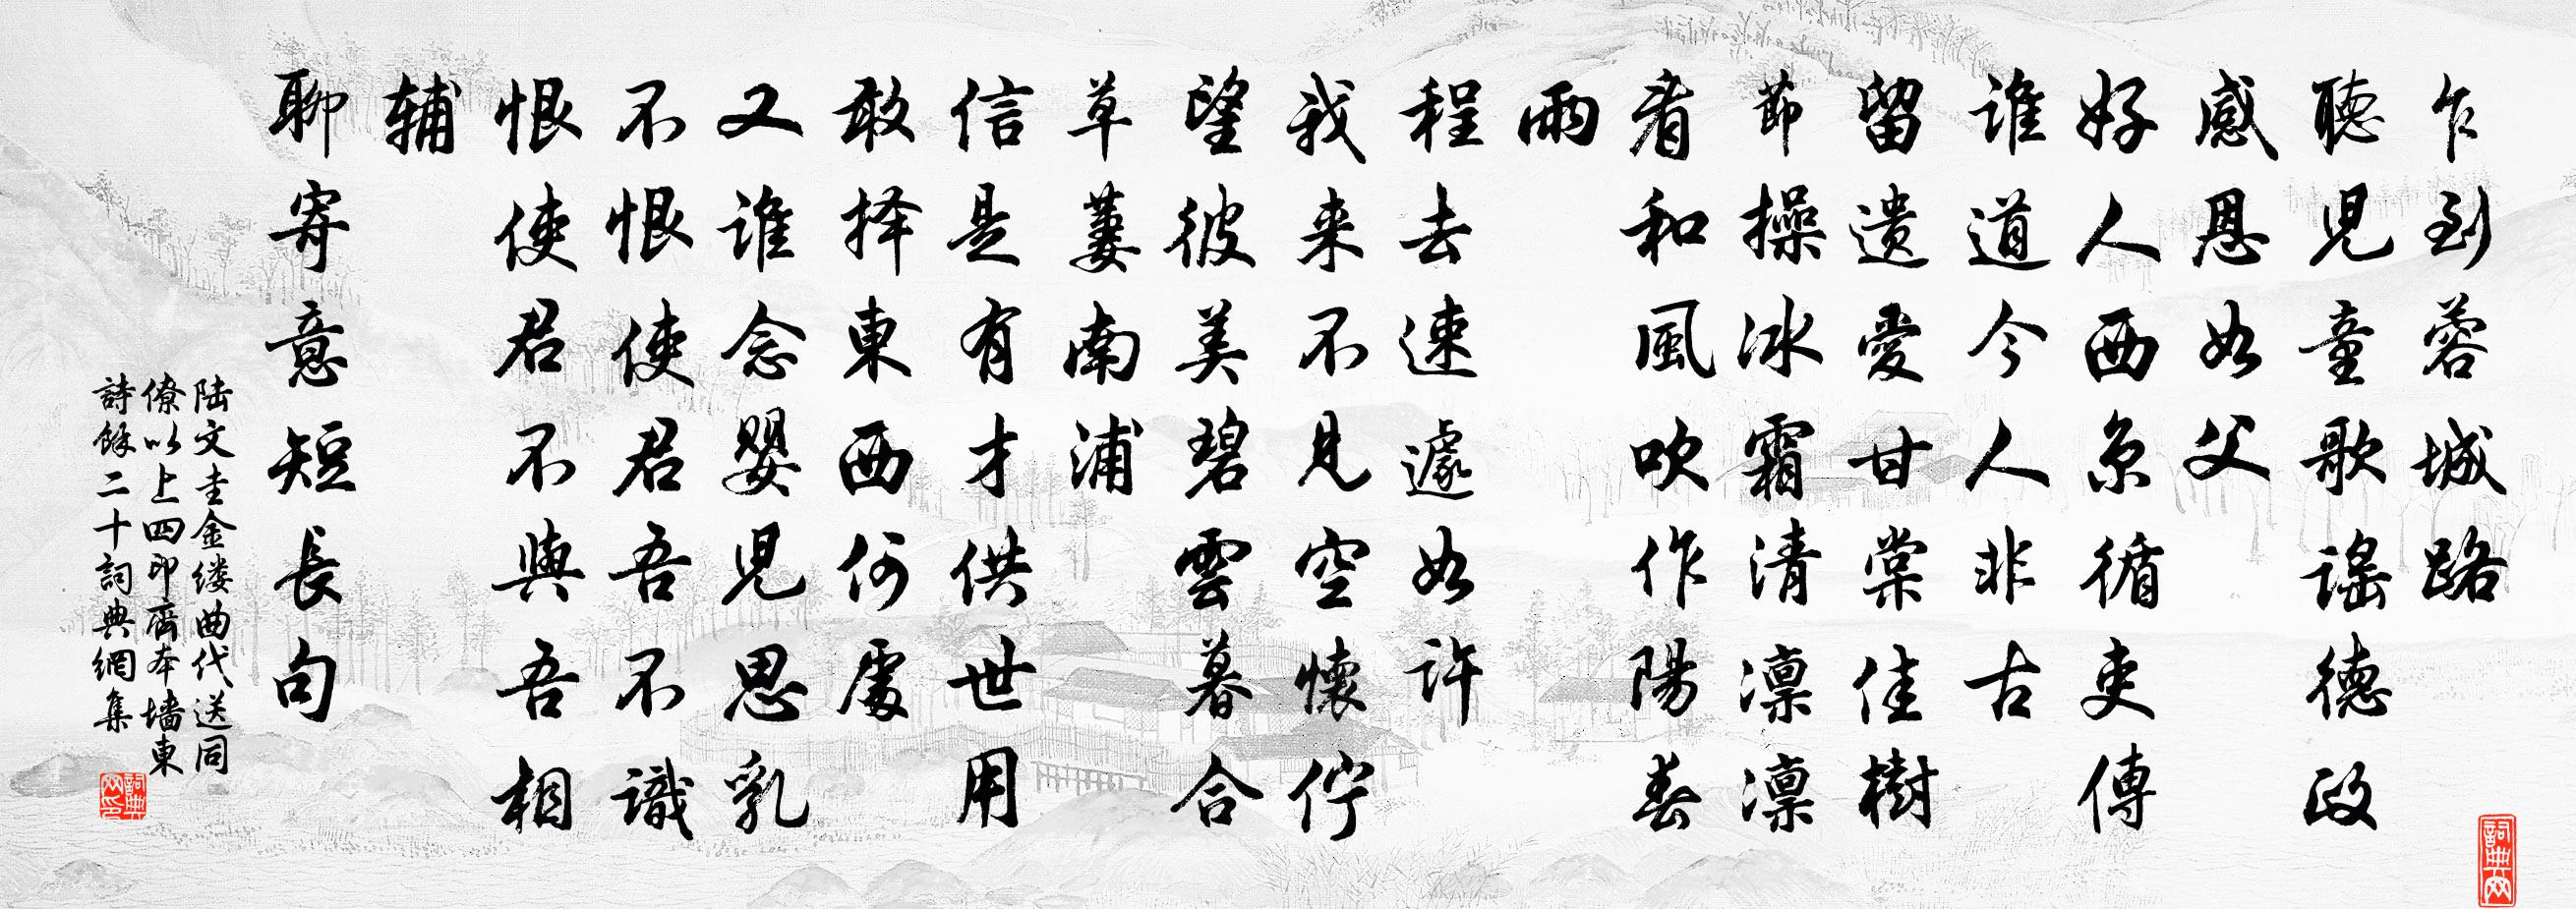 乍到蓉城路
聽兒童歌謠德政
感恩如父
好人西京循吏傳
誰道今人非古
留遗愛甘棠佳樹
節操冰霜清凛凛
看和風吹作陽春
雨
程去速遽如许
我来不見空懷伫
望彼美碧雲暮合
草萋南浦
信是有才供世用
敢择東西何處
又誰念嬰兒思乳
不恨使君吾不識
恨使君不與吾相
辅
聊寄意短長句
陆文圭金缕曲代送同
僚以上四印齋本墙東
詩餘二十詞典網集
詞典网
詞典网印